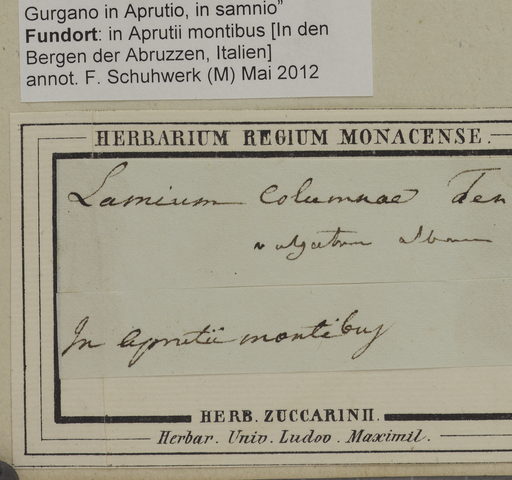 Gurgano in Aprutio, in samnio”
Fundort: in Aprutii montibus [In den
Bergen der Abruzzen, Italien]
annot. F. Schuhwerk (M) Mai 2012
HERBARIUM REGIUM MONACENSE.
Lamium columnae Ten
In Aprutii montibus
HERB. ZUCCARINII.
Herbar. Univ. Ludov. Maximil.